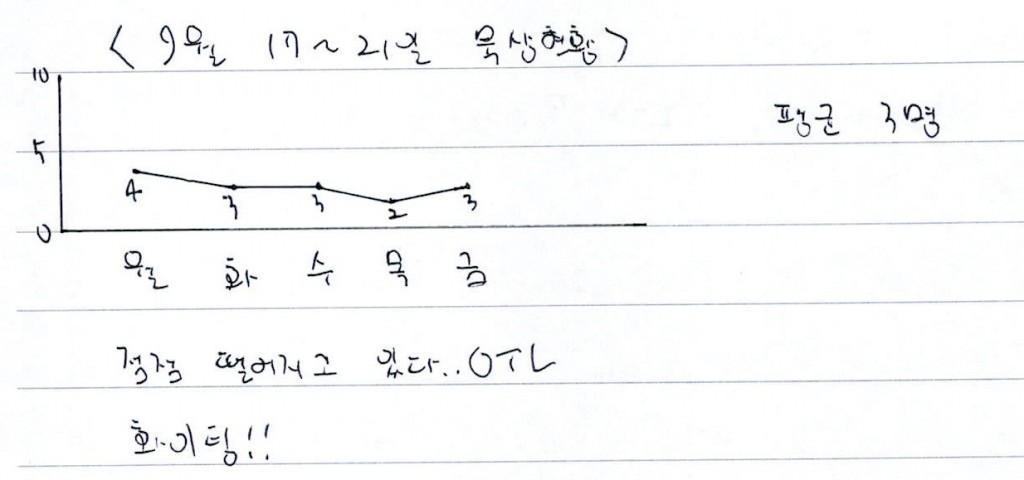 <9월 17~21일 묵상현황>
10
평균 3명
5
4 3 3 2 3
0
월 화 수 목 금
점점 떨어지고 있다..OTL
화이팅!!